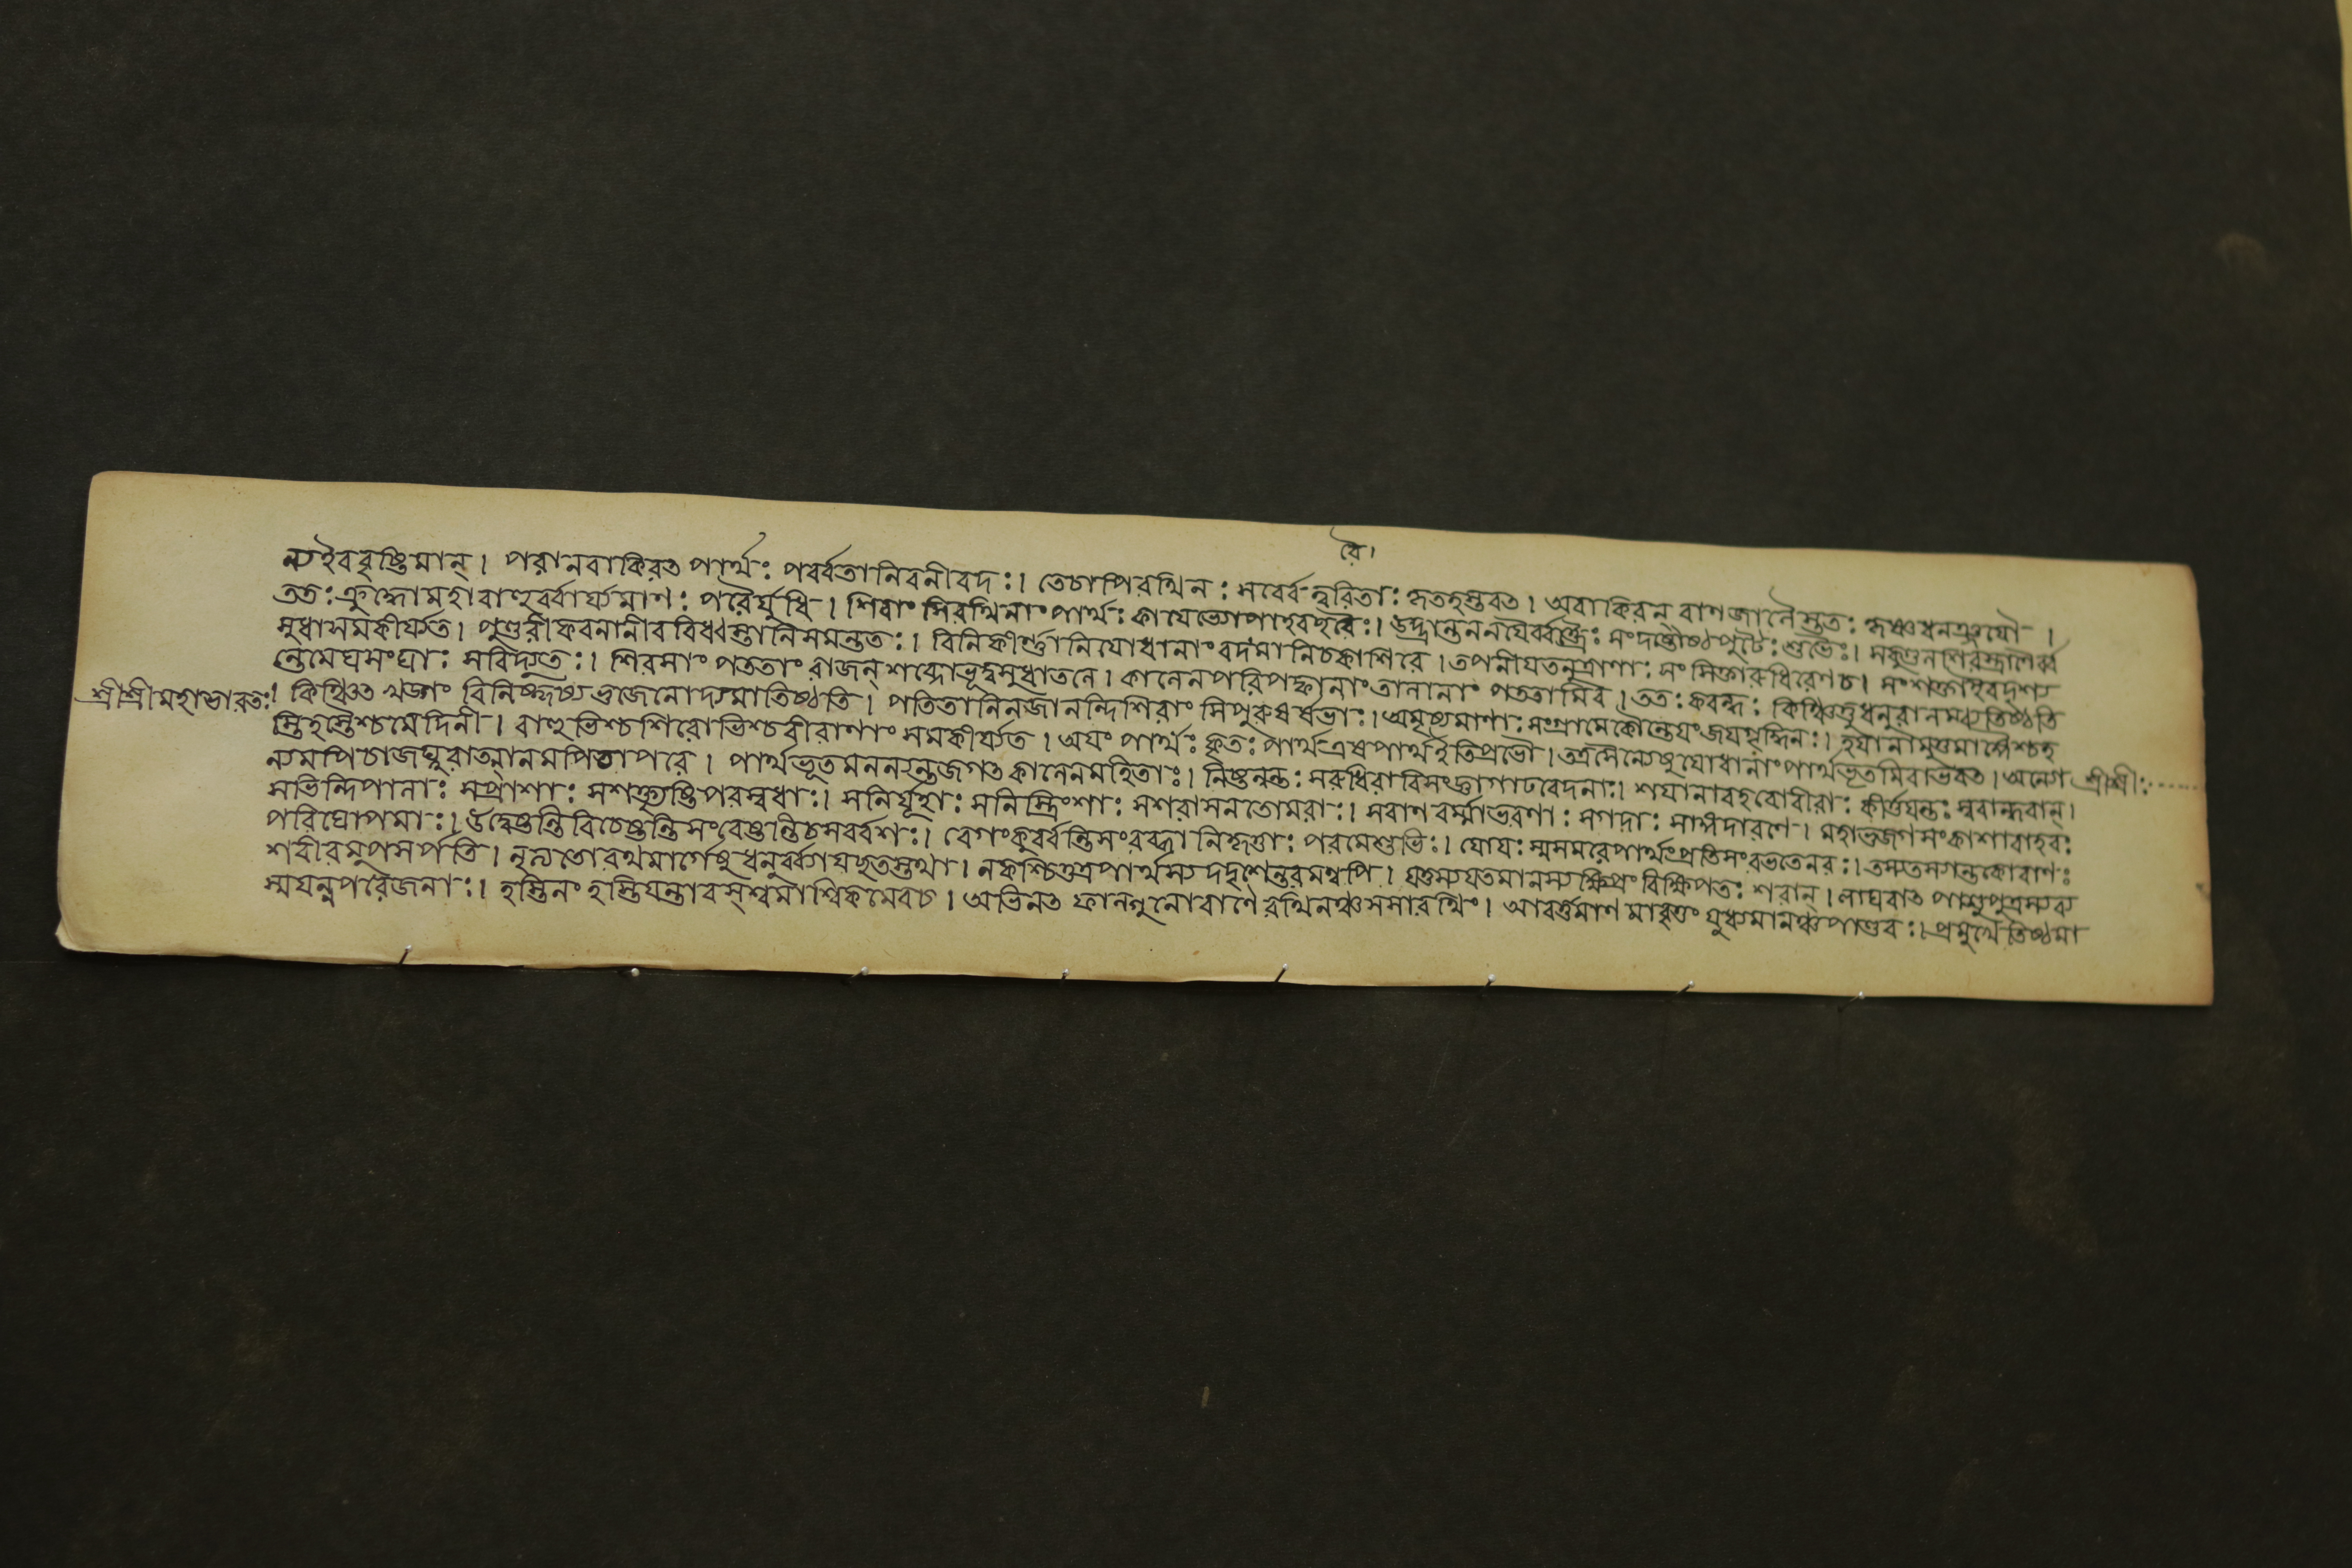 রৈ।
ন্যইববৃষ্টিমান্। পরানবাকিরৎ পার্থঃ পর্ব্বতানিবনীবদঃ। তেচাপিরথিনঃ সর্ব্বেত্বরিতাঃ কৃতহস্তবৎ। অবাকিরন্ বাণজালৈস্ততঃ কৃষ্ণধনঞ্জযৌ।
ততঃ ক্রুদ্ধোমহাবাহুর্ব্বার্য্যমাণঃ পরৈর্যুধি। শিরাংসিরথিনাং পার্থঃ কাযেভ্যোপাহরচ্ছরৈঃ। উদ্ভ্রান্তনযনৈর্ব্বক্ত্রৈঃ সংদষ্টৌষ্ঠপুটৈঃ শুভৈঃ।
সুধাসমকীর্য্যত। পুণ্ডরীকবনানীববিধ্বস্তানিসমন্ততঃ। বিনিকীর্ণ্ণানিযোধানাং বদনানিচকাশিরে। তপনীযতনুত্রাণাঃ সংসিক্তারুধিরেণচ। সংশক্তাইবদৃশ্য
ন্তেমেঘসংঘাঃ সবিদ্যুতঃ। শিরসাং পততাং রাজন্ শব্দোভূদ্বসুধাতলে। কালেনপরিপক্বানাং তালানাং পততামিব। ততঃ কবন্ধঃ কিঞ্চিত্তুধনুরালম্ব্যতিষ্ঠতি
শ্রীশ্রীমহাভারতঃ। কিঞ্চিৎ খড্গং বিনিষ্কৃষ্য ভুজেনোদ্যম্যতিষ্ঠতি। পতিতানিনজানন্তিশিরাংসিপুরুষর্ষভাঃ। অমৃষ্যমাণাঃ সংগ্রামেকৌন্তেযং জযগৃদ্ধিনঃ। হযানামুত্তমাঙ্গৈশ্চহ
স্তিহস্তৈশ্চমেদিনী। বাহুভিশ্চশিরোভিশ্চবীরাণাং সমকীর্য্যত। অযং পার্থঃ কুতঃ পার্থএষপার্থইতিপ্রভো। তত্রসৈন্যেষুযোধানাং পার্থভূতমিবাভবৎ। অন্যো শ্রীশ্রীঃ
ন্যমপিচাজঘ্নুরাত্মানমপিচাপরে। পার্থভূতমমন্যন্তজগৎ কালেনমহিতাঃ। নিষ্টনন্তঃ সরুধিরাবিসংজ্ঞাগাঢবেদনাঃ। শযানাবহবোবীরাঃ কীর্ত্তযন্তঃ স্ববান্ধবান্।
সভিন্দিপালাঃ সপ্রাশাঃ সশক্ত্যৃষ্টিপরস্বধাঃ। সনির্যূহাঃ সনিস্ত্রিংশাঃ সশরাসনতোমরাঃ। সবাণবর্ম্মাভরণাঃ সগদাঃ সাঙ্গদারণে। মহাভুজগসংকাশাবাহবঃ
পরিঘোপমাঃ। উদ্বেষ্টন্তিবিচেষ্টন্তিসংবেষ্টন্তিচসর্ব্বশঃ। বেগং কুর্ব্বন্তিসংরব্ধা নিকৃত্তাঃ পরমেশুভিঃ। যোযঃ স্মসমরেপার্থংপ্রতিসংরভতেনরঃ। তস্যতস্যান্তকোবাণঃ
শরীরমুপসর্পতি। নৃত্যতোরথমার্গেষু ধনুর্ব্ব্যাযচ্ছতস্তথা। নকশ্চিত্তত্রপার্থস্য দদৃশেন্তরমণ্বপি। যত্তস্যযতমানস্যক্ষিপ্রং বিক্ষিপতঃ শরান্। লাঘবাৎ পাণ্ডুপুত্রস্যব্য
স্মযন্নপরেজনাঃ। হস্তিনং হস্তিযন্তারমশ্বমাশ্বিকমেবচ। অভিনৎ ফালগুনোবাণৈ রথিনঞ্চসসারথিং। আবর্ত্তমাণ মাবৃত্তং যুধ্যমানঞ্চপাণ্ডবঃ। প্রমুখেতিষ্ঠমা